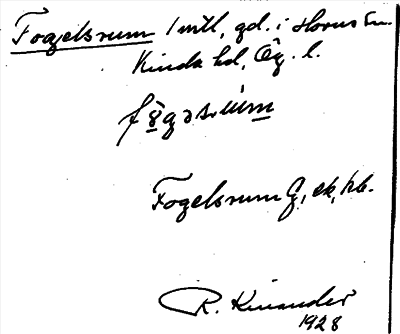 Fogelsrum 1 mtl, gd. i Horns sn.
Kinda hd, Ög. l.
Fogelsrum G, ek, hb.
R. Kinander
1928